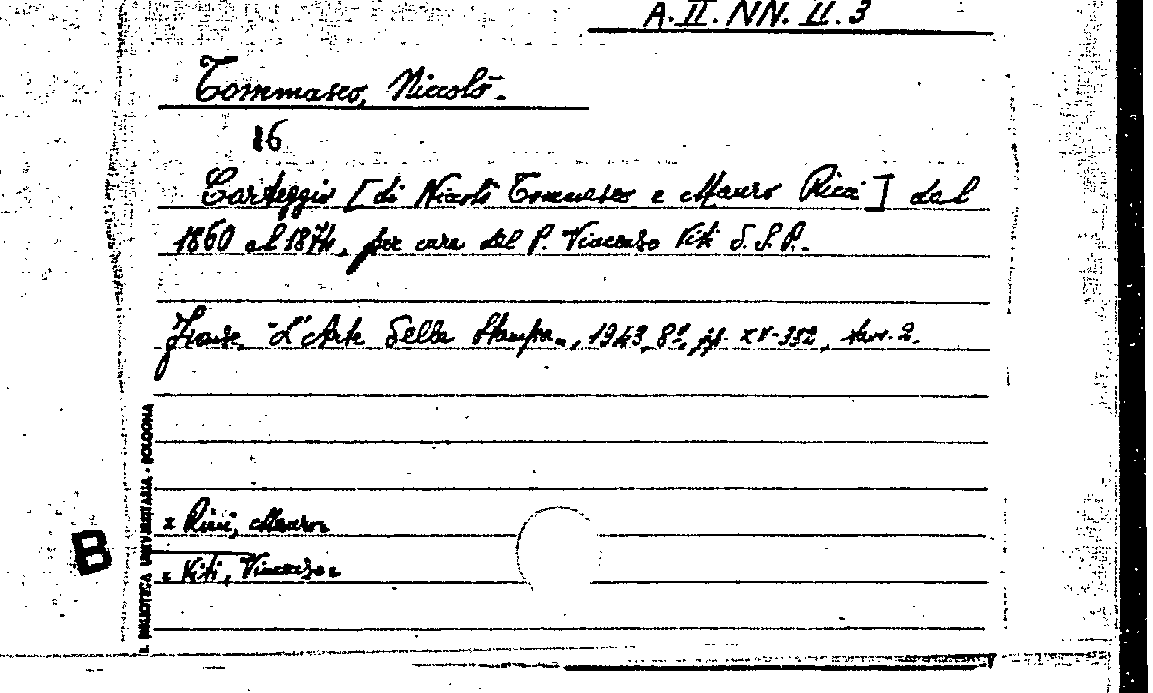 A. II. NN. II. 3
Tommaseo, Niccolò.
16
Carteggio [di Nicolò Tommaseo e Mauro Ricci] dal
1860 al 1874, per cura del P. Vincenzo Viti d. S. P.
Firenze, "L'Arte della Stampa", 1943, 8º, pp. XV-352, tav. 2.
x Ricci, Mauro
x Viti, Vincenzo
B
R. BIBLIOTECA UNIVERSITARIA - BOLOGNA